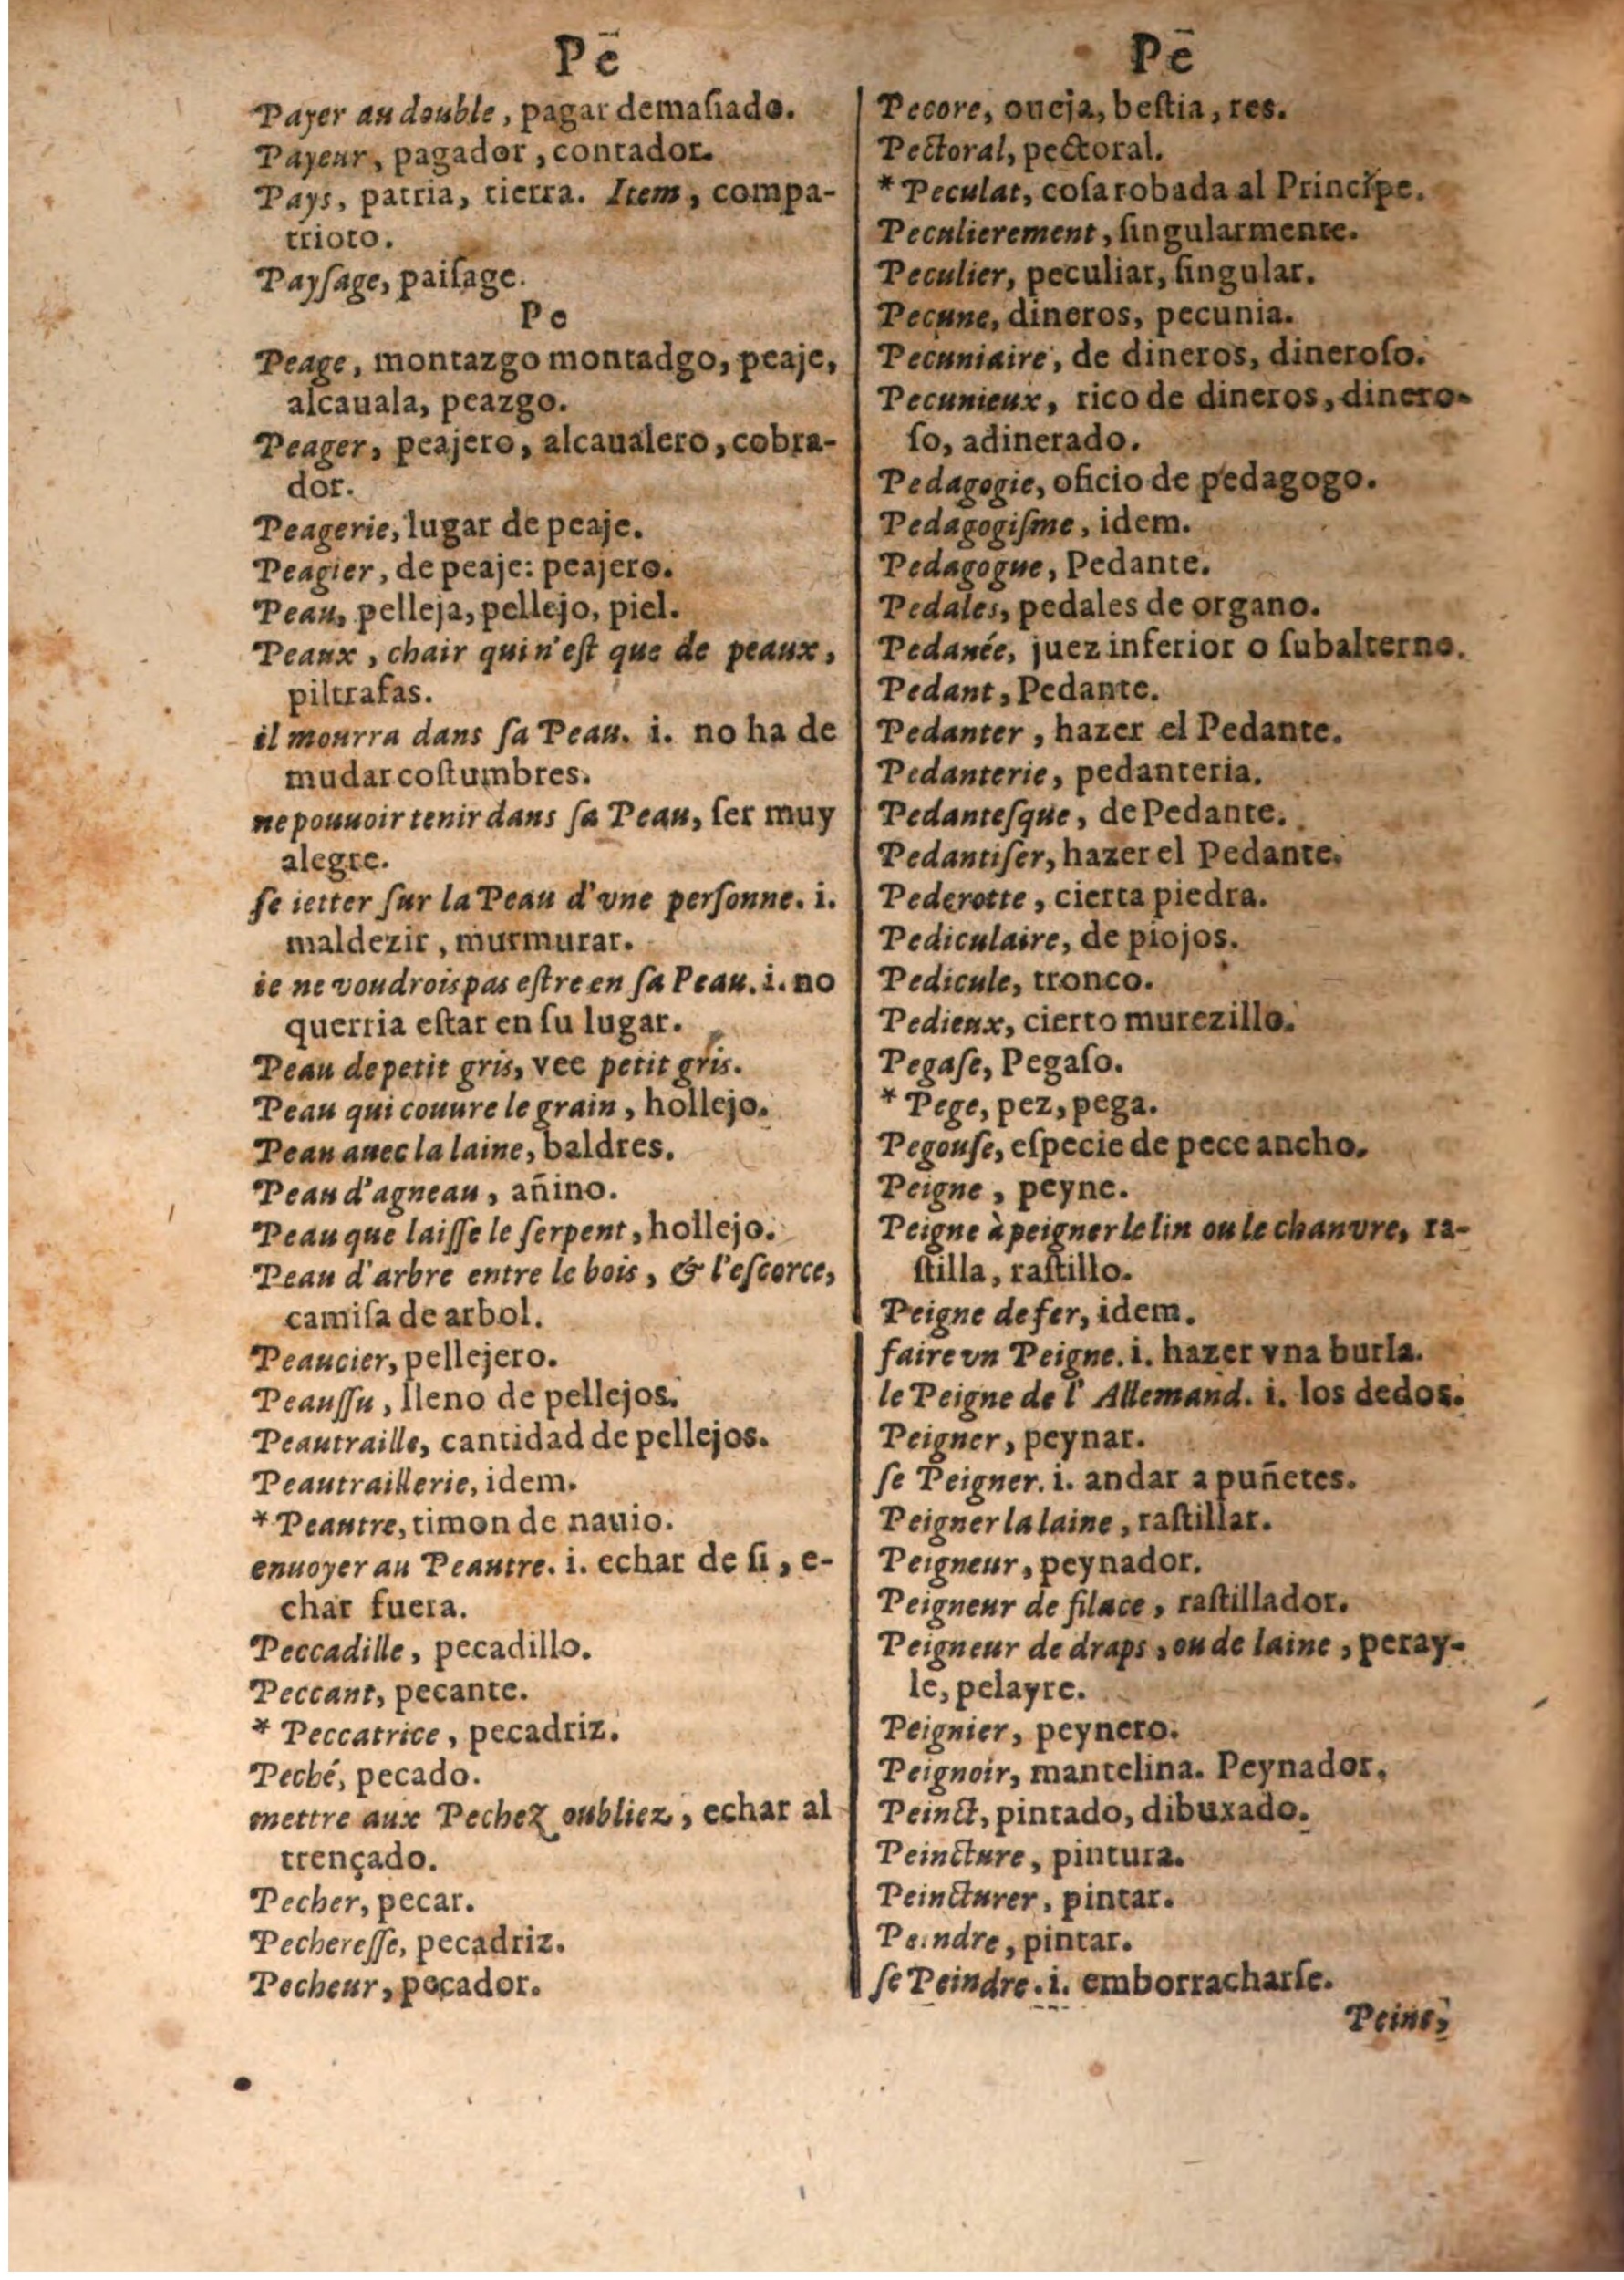 Pē
Payer au double, pagar demaſiado.
Payeur, pagador, contador.
Pays, patria, tierra. Item, compa-
trioto.
Payſage, paiſage.
Pe
Peage, montazgo montadgo, peaje,
alcauala, peazgo.
Peager, peajero, alcaualero, cobra-
dor.
Peagerie, lugar de peaje.
Peagier, de peaje: peajero.
Peau, pelleja, pellejo, piel.
Peaux, chair qui n'eſt que de peaux,
piltrafas.
il mourra dans ſa Peau. i. no ha de
mudar coſtumbres.
ne pouuoir tenir dans ſa Peau, ſer muy
alegre.
ſe ietter ſur la Peau d'vne perſonne. i.
maldezir, murmurar.
ie ne voudrois pas eſtre en ſa Peau. i. no
querria eſtar en ſu lugar.
Peau de petit gris, vee petit gris.
Peau qui couure le grain, hollejo.
Peau auec la laine, baldres.
Peau d'agneau, añino.
Peau que laiſſe le ſerpent, hollejo.
Peau d'arbre entre le bois, & l'eſcorce,
camiſa de arbol.
Peaucier, pellejero.
Peauſſu, lleno de pellejos.
Peautraille, cantidad de pellejos.
Peautraillerie, idem.
* Peautre, timon de nauio.
enuoyer au Peautre. i. echar de ſi, e-
char fuera.
Peccadille, pecadillo.
Peccant, pecante.
* Peccatrice, pecadriz.
Peché, pecado.
mettre aux Pechez oubliez, echar al
trençado.
Pecher, pecar.
Pechereſſe, pecadriz.
Pecheur, peçador.
Pē
Pecore, oueja, beſtia, res.
Pectoral, pectoral.
* Peculat, coſa robada al Principe.
Peculierement, ſingularmente.
Peculier, peculiar, ſingular.
Pecune, dineros, pecunia.
Pecuniaire, de dineros, dineroſo.
Pecunieux, rico de dineros, dinero-
ſo, adinerado.
Pedagogie, oficio de pedagogo.
Pedagogiſme, idem.
Pedagogue, Pedante.
Pedales, pedales de organo.
Pedanée, juez inferior o ſubalterno.
Pedant, Pedante.
Pedanter, hazer el Pedante.
Pedanterie, pedanteria.
Pedanteſque, de Pedante.
Pedantiſer, hazer el Pedante.
Pederotte, cierta piedra.
Pediculaire, de piojos.
Pedicule, tronco.
Pedieux, cierto murezillo.
Pegaſe, Pegaſo.
* Pege, pez, pega.
Pegouſe, eſpecie de pece ancho.
Peigne, peyne.
Peigne à peigner le lin ou le chanvre, ra-
ſtilla, raſtillo.
Peigne de fer, idem.
faire vn Peigne. i. hazer vna burla.
le Peigne de l'Allemand. i. los dedos.
Peigner, peynar.
ſe Peigner. i. andar a puñetes.
Peigner la laine, raſtillar.
Peigneur, peynador.
Peigneur de filace, raſtillador.
Peigneur de draps, ou de laine, peray-
le, pelayre.
Peignier, peynero.
Peignoir, mantelina. Peynador.
Peinct, pintado, dibuxado.
Peincture, pintura.
Peincturer, pintar.
Peindre, pintar.
ſe Peindre. i. emborracharſe.
Peine,